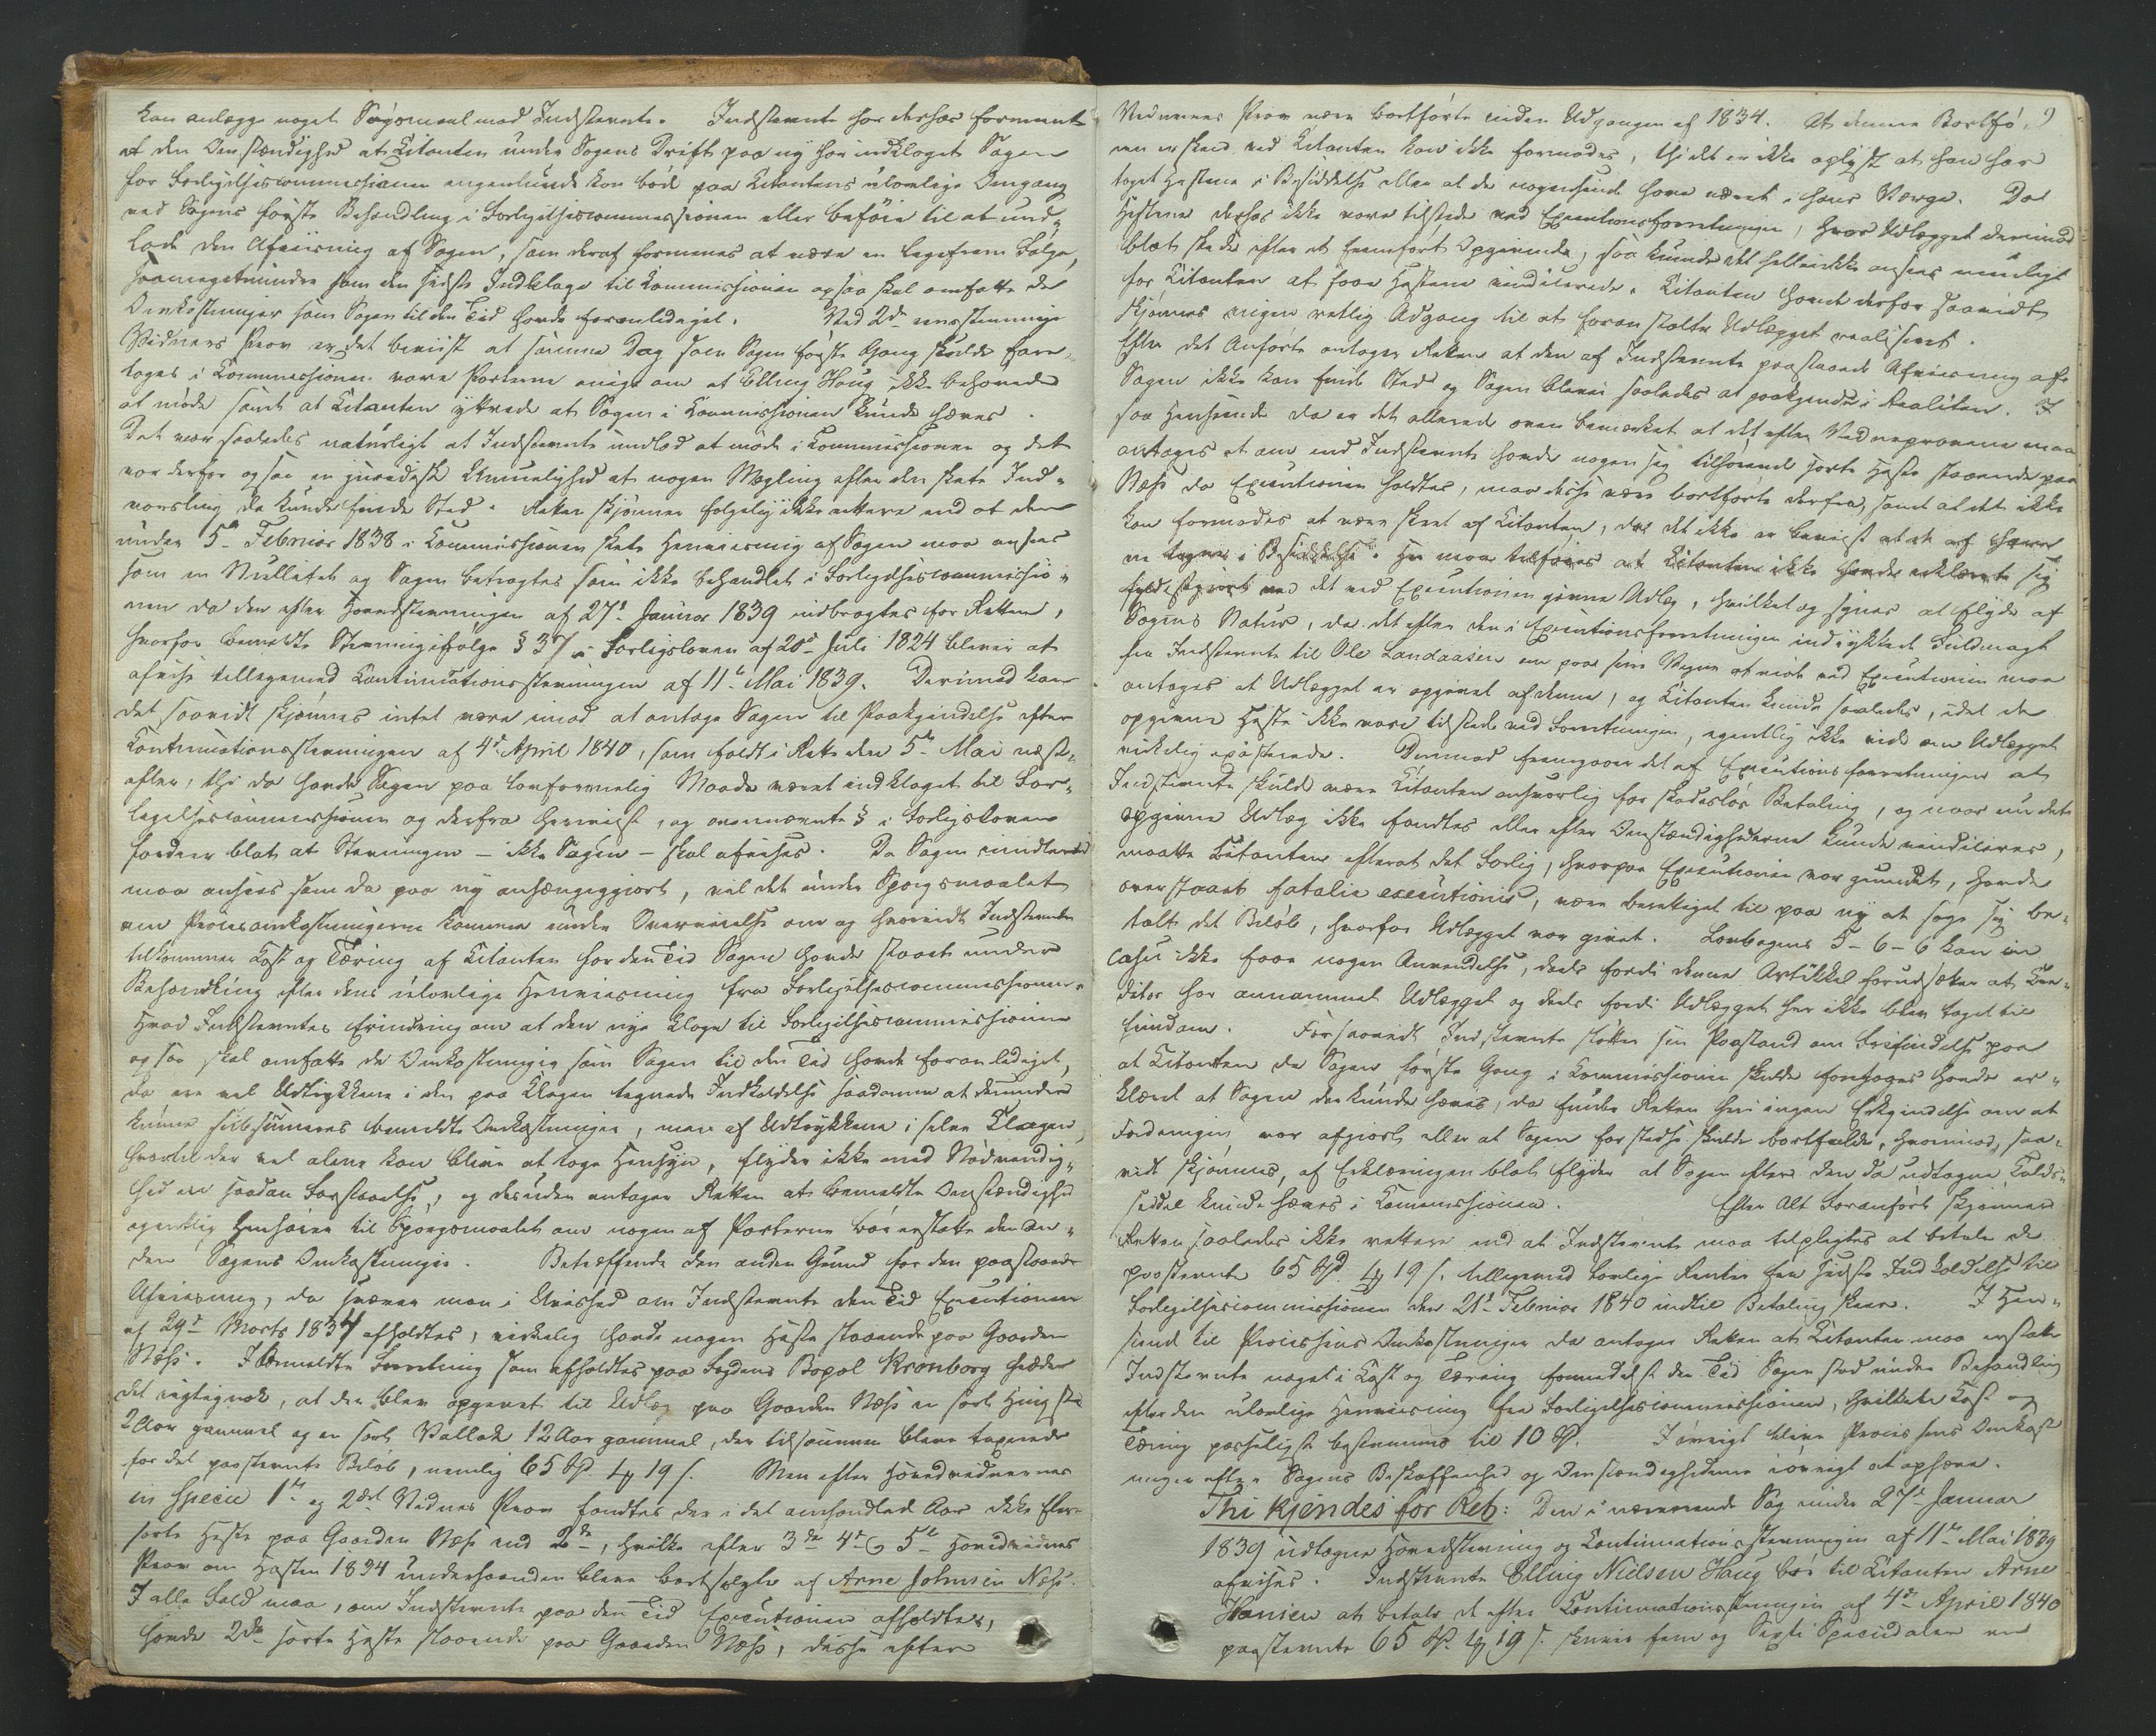 kan anlægge noget Søgsmaal mod Indstevnte. Indstevnte har derhos formeent
at den Omstændighed at Citanten under Sagens Drift paa ny har indklaget Sagen
for Forligelsescommissionen ingenlunde kan bøde paa Citantens ulovlige Omgang
ved Sagens første Behandling i Forligelsescommissionen eller beføie til at und-
lade den Afviisning af Sagen, som deraf formenes at være en ligefrem Følge,
saameget mindre som den sidste Indklage til Commissionen ogsaa skal omfatte de
Omkostninger som Sagen til den Tid havde foranlediget. Ved 2de eensstemmige
Vidners Prov er det beviist at samme Dag som Sagen første Gang skulde fore-
tages i Commissionen vare Parterne enige om at Elling Haug ikke behøvede
at møde samt at Citanten yttrede at Sagen i Commissionen kunde hæves.
Det var saaledes naturligt at Indstevnte undlod at møde i Commissionen og det
var derfor ogsaa en juridisk Umuelighed at nogen Mægling efter den skete Ind-
varsling da kunde finde Sted. Retten skjønner følgelig ikke rettere end at den
under 5te Februar 1838 i Commissionen skete Henviisning af Sagen maa ansees
som en Nullitet og Sagen betragtes som ikke behandlet i Forligelsescommissio-
nen da den efter Hovedstevningen af 27de Januar 1839 indbragtes for Retten,
hvorfor bemeldte Stevning ifølge § 37 i Forligsloven af 20de Juli 1824 bliver at
afvise tilligemed Continuationsstevningen af 11te Mai 1839. Derimod kan
det saavidt skjønnes intet være imod at antage Sagen til Paakjendelse efter
Continuationsstevningen af 4de April 1840, som faldt i Rette den 5te Mai næst-
efter, thi da havde Sagen paa lovformelig Maade været indklaget til For-
ligelsescommissionen og derfra henviist, og ovennævnte § i Forligsloven
fordrer blot at Stevningen – ikke Sagen – skal afvises. Da Sagen imidlertid
maa ansees som da paa ny anhængiggjort, vil det under Spørgsmaalet
om Procesomkostningerne komme under Overveielse om og hvorvidt Indstevnte
tilkommer Kost og Tæring af Citanten for den Tid Sagen havde staaet under
Behandling efter dens ulovlige Henviisning fra Forligelsescommissionen.
Hvad Indstevntes Erindring om at den nye Klage til Forligelsescommissionen
ogsaa skal omfatte de Omkostninger som Sagen til den Tid havde foranlediget,
da ere vel Udtrykkene i den paa Klagen tegnede Indkaldelse saadanne at derunder
kunne subsumeres bemeldte Omkostninger, men af Udtrykkene i selve Klagen,
hvortil der vel alene kan blive at tage Hensyn, flyder ikke med Nødvendig-
hed en saadan Forstaaelse, og desuden antager Retten at bemeldte Omstændighed
egentlig henhører til Spørgsmaalet om nogen af Parterne bør erstatte den an-
den Sagens Omkostninger. Betræffende den anden Grund for den paastaaede
Afviisning, da svæver man i Uvished om Indstevnte den Tid Executionen
af 29de Marts 1834 afholdtes, virkelig havde nogen Heste staaende paa Gaarden
Næss. I bemeldte Forretning som afholdtes paa Fogdens Bopæl Kronborg hedder
det rigtignok, at der blev opgivet til Udlæg paa Gaarden Næss en sort Hingst
2 Aar gammel og en sort Vallak 12 Aar gammel, der tilsammen bleve taxerede
for det paastevnte Beløb, nemlig 65 Spd. 4 ₰ 19 s. Men efter Hovedvidnernes
in specie 1ste og 2det Vidnes Prov fandtes der i det omhandlede Aar ikke flere
sorte Heste paa Gaarden Næss end 2de, hvilke efter 3die 4de & 5te Hovedvidnes
Prov om Høsten 1834 underhaanden bleve bortsolgte af Arne Johnsen Næss.
I alle Fald maa, om Indstevnte paa den Tid Executionen afholdtes,
havde 2de sorte Heste staaende paa Gaarden Næss, disse efter
9
Vidnernes Prov være bortførte inden Udgangen af 1834. At denne Bortfø-
ren er skeed ved Citanten kan ikke formodes, thi det er ikke oplyst at han har
taget Hestene i Besiddelse eller at de nogensinde have været i hans Værge. Da
Hestene derhos ikke vare tilstede ved Executionsforretningen, hvor Udlægget derimod
blot skede efter et fremført Opgivende, saa kunde det heller ikke ansees mueligt
for Citanten at faae Hestene vindicerede. Citanten havde derfor saavidt
skjønnes ingen retlig Adgang til at foranstalte Udlægget realiseret.
Efter det Anførte antager Retten at den af Indstevnte paastaaede Afviisning af
Sagen ikke kan finde Sted og Sagen bliver saaledes at paakjende i Realiteten. I
saa Henseende da er det allerede oven bemærket at det efter Vidneprovene maa
antages at om end Indstevnte havde nogen sig tilhørende sorte Heste staaende paa
Næss da Executionen holdtes, maa disse være bortførte derfra, samt at det ikke
kan formodes at være skeet af Citanten, da det ikke er beviist at de af ham
ere tagne i Besiddelse. Her maa tilføies at Citanten ikke havde erklæret sig
fyldestgjort med det ved Executionen givne Udlæg, hvilket og synes at flyde af
Sagens Natur, da det efter den i Executionsforretningen indrykkede Fuldmagt
fra Indstevnte til Ole Landaasen om paa sine Vegne at møde ved Executionen maa
antages at Udlægget er opgivet af denne, og Citanten kunde saaledes, idet de
opgivne Heste ikke vare tilstede ved Forretningen, egentlig ikke vide om Udlægget
virkelig existerede. Derimod fremgaaer det af Executionsforretningen at
Indstevnte skulde være Citanten ansvarlig for skadesløs Betaling, og naar nu dette
opgivne Udlæg ikke fandtes eller efter Omstændighederne kunde vindiceres,
maatte Citanten efterat det Forlig, hvorpaa Executionen var grundet, havde
overstaaet fatalia executionis, være berettiget til paa ny at søge sig be-
talt det Beløb, hvorfor Udlægget var givet. Lovbogens 5-6-6 kan in
casu ikke faae nogen Anvendelse, deels fordi denne Artikkel forudsætter at Cre-
ditor har annammet Udlægget og deels fordi Udlægget her ikke blev taget til
Eiendom. Forsaavidt Indstevnte støtter sin Paastand om Frifindelse paa
at Citanten da Sagen første Gang i Commissionen skulde foretages havde er-
klæret at Sagen der kunde hæves, da finder Retten heri ingen Erkjendelse om at
Fordringen var afgjort eller at Sagen for stedse skulde bortfalde, hvorimod, saa-
vidt skjønnes, af Erklæringen blot flyder at Sagen efter den da udtagne Kalds-
seddel kunde hæves i Commissionen. Efter Alt Foranført skjønner
Retten saaledes ikke rettere end at Indstevnte maa tilpligtes at betale de
paastevnte 65 Spd. 4 ₰ 19 s. tilligemed lovlige Renter fra sidste Indkaldelse til
Forligelsescommissionen den 21de Februar 1840 indtil Betaling skeer. I Hen-
seende til Processens Omkostninger da antager Retten at Citanten maa erstatte
Indstevnte noget i Kost og Tæring formedelst den Tid Sagen stod under Behandling
efter den ulovlige Henviisning fra Forligelsescommissionen, hvilken Kost og
Tæring passeligst bestemmes til 10 Spd. Iøvrigt blive Processens Omkost-
ninger efter Sagens Beskaffenhed og Omstændighederne iøvrigt at ophæve.
Thi kjendes for Ret: Den i nærværende Sag under 27de Januar
1839 udtagne Hovedstevning og Continuationsstevningen af 11te Mai 1839
afvises. Indstevnte Elling Nielsen Haug bør til Citanten Arne
Hansen at betale de efter Continuationsstevningen af 4de April 1840
paastevnte 65 Spd. 4 ₰ 19 s. skriver fem og Sexti Speciedaler en